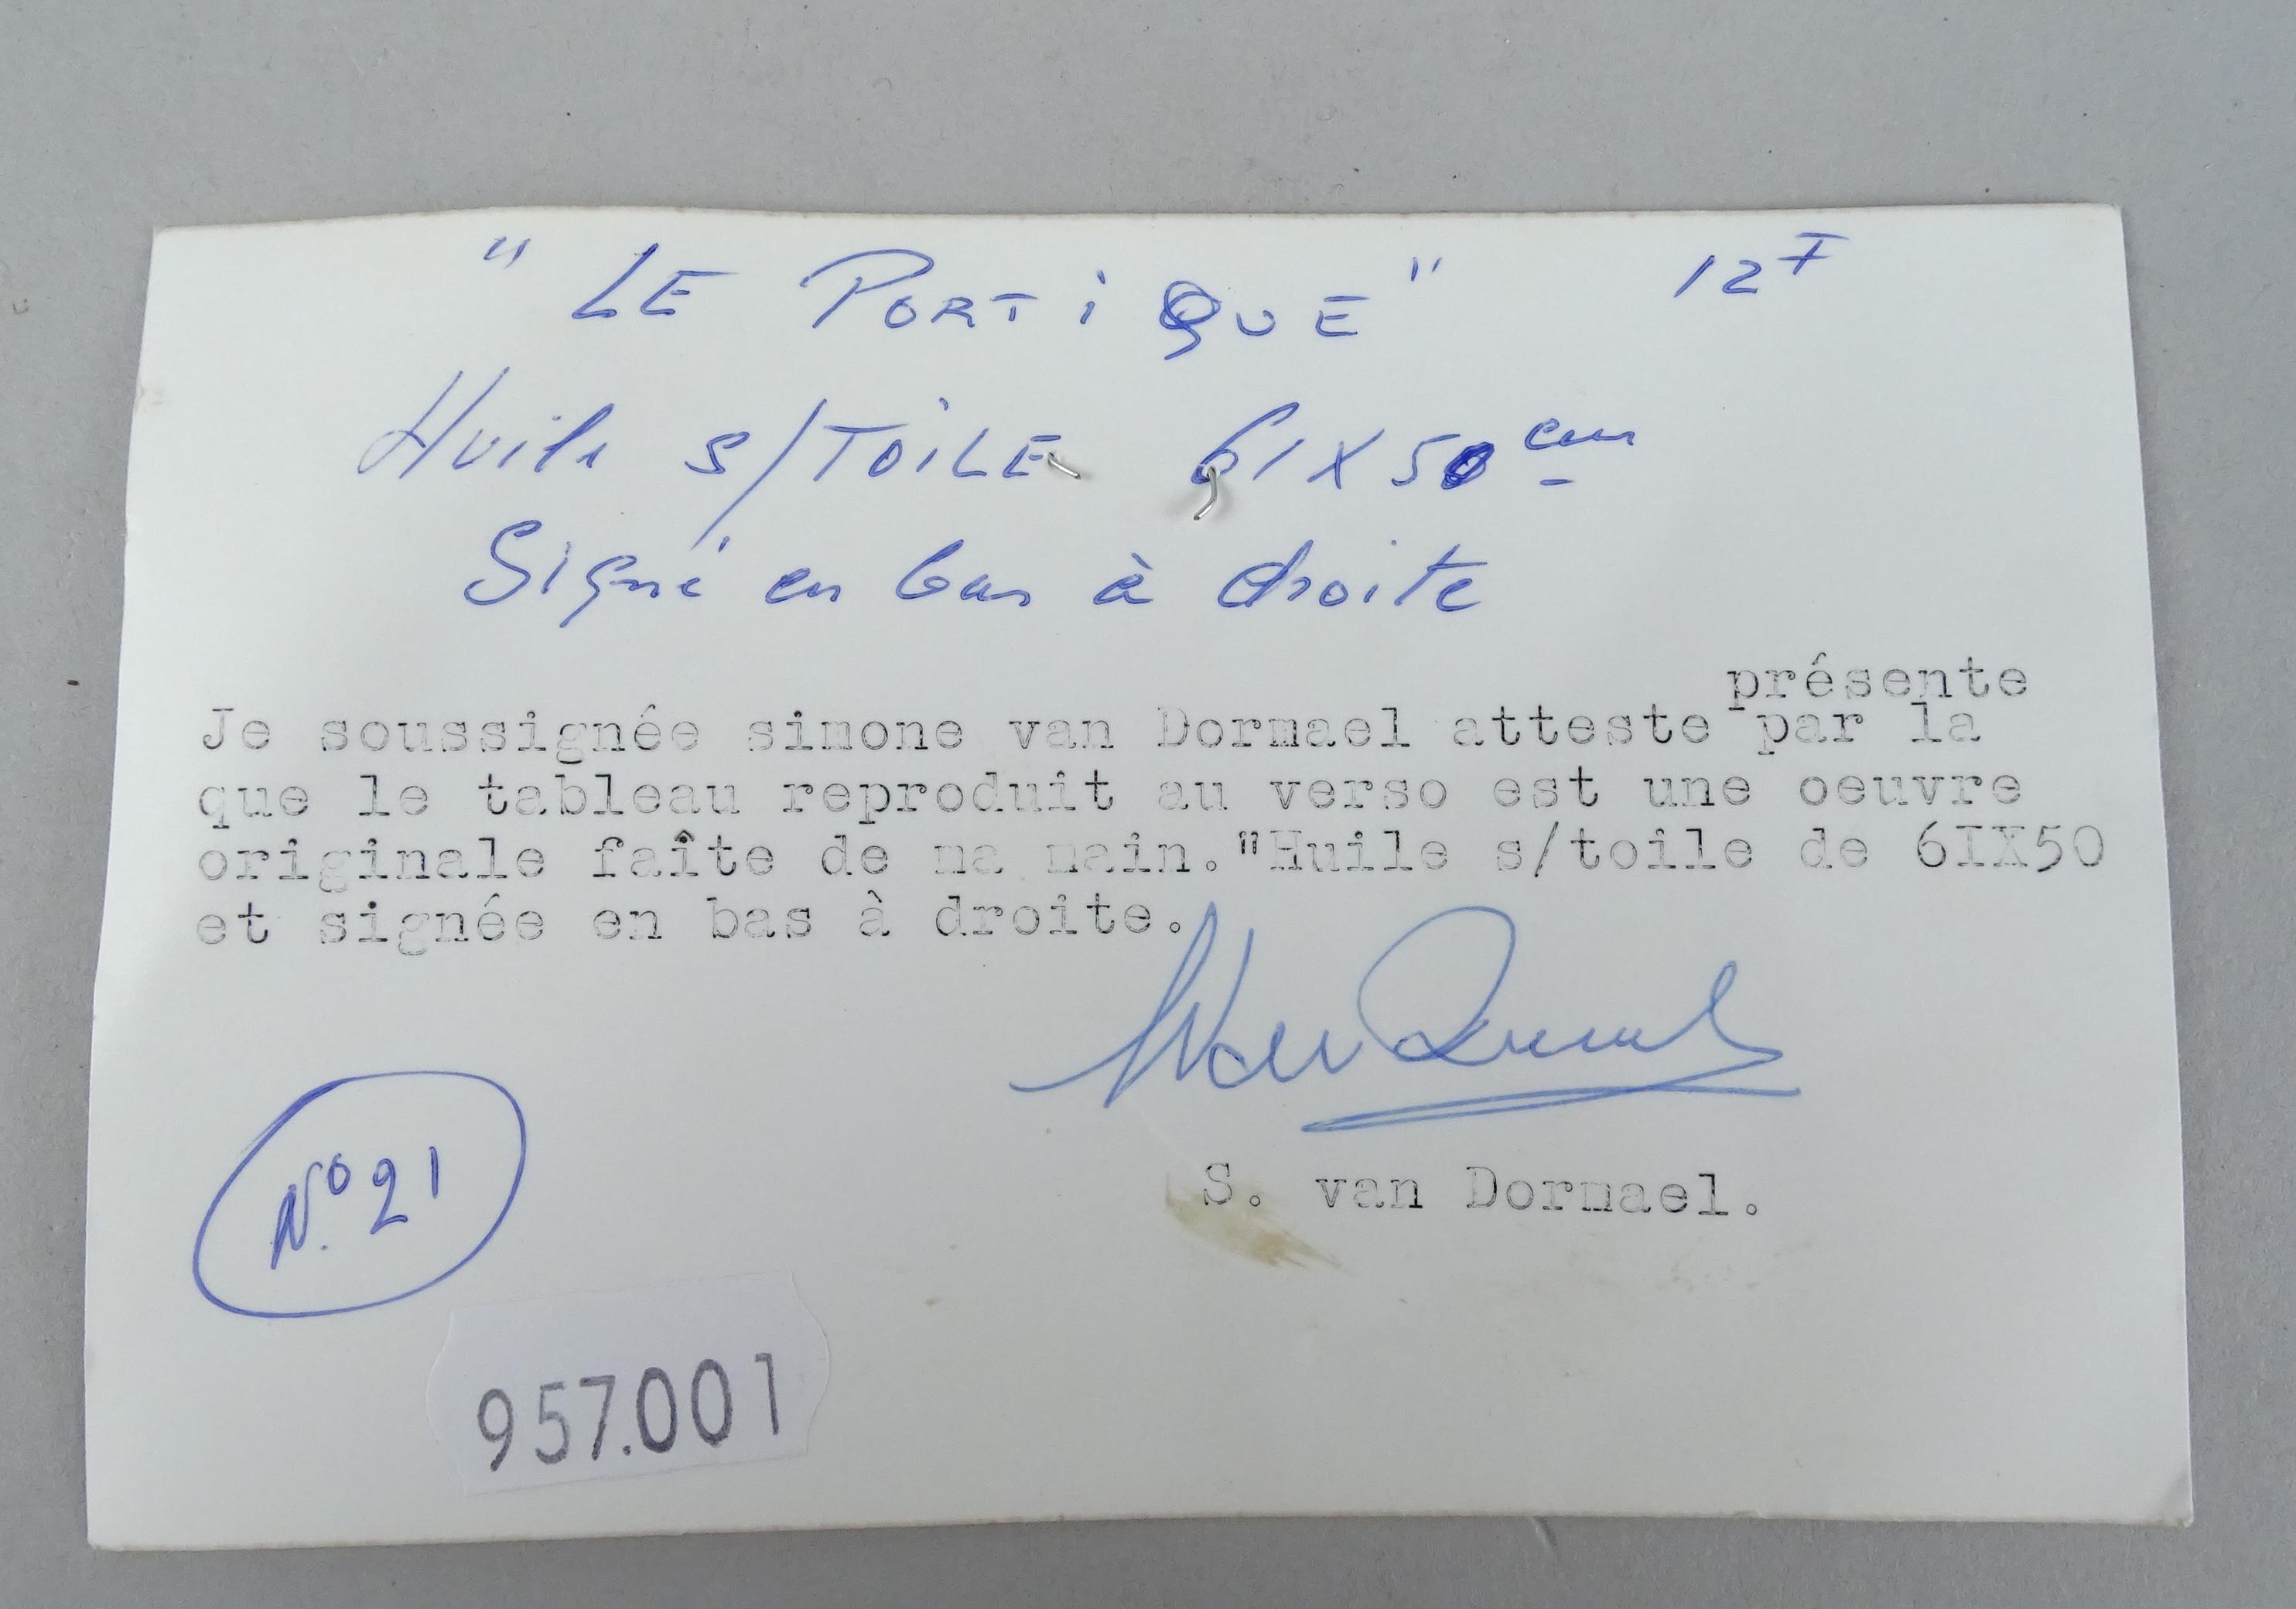 " LE PORTiQUE " 12 F
Huile s/TOiLE 61 X 50 cm
Signé en bas à droite
présente
Je soussignée simone van Dormael atteste par la
que le tableau reproduit au verso est une oeuvre
originale faîte de ma main."Huile s/toile de 6IX50
et signée en bas à droite.
Van Dormael
S. van Dormael.
N.º 21
957.001